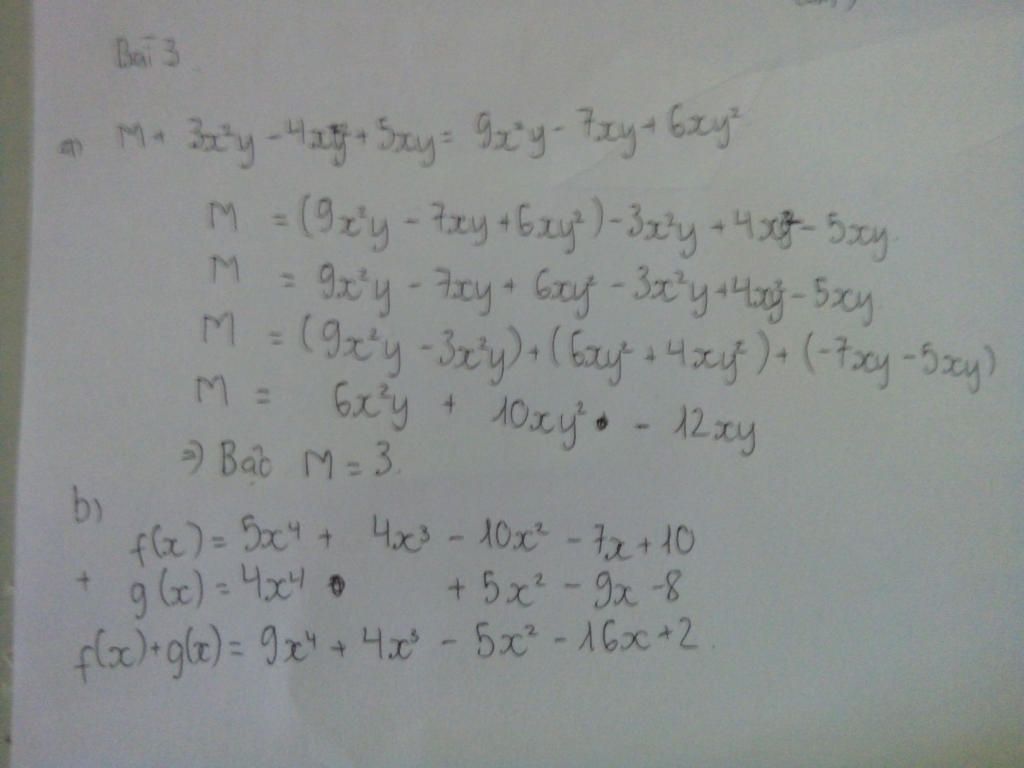 Bài 3
a) M + 3x²y - 4xy² + 5xy = 9x²y - 7xy + 6xy²
M = (9x²y - 7xy + 6xy²) - 3x²y + 4xy² - 5xy
M = 9x²y - 7xy + 6xy² - 3x²y + 4xy² - 5xy
M = (9x²y - 3x²y) + (6xy² + 4xy²) + (-7xy - 5xy)
M = 6x²y + 10xy² - 12xy
=> Bậc M = 3.
b)
f(x) = 5x⁴ + 4x³ - 10x² - 7x + 10
+ g(x) = 4x⁴ + 5x² - 9x - 8
f(x) + g(x) = 9x⁴ + 4x³ - 5x² - 16x + 2.